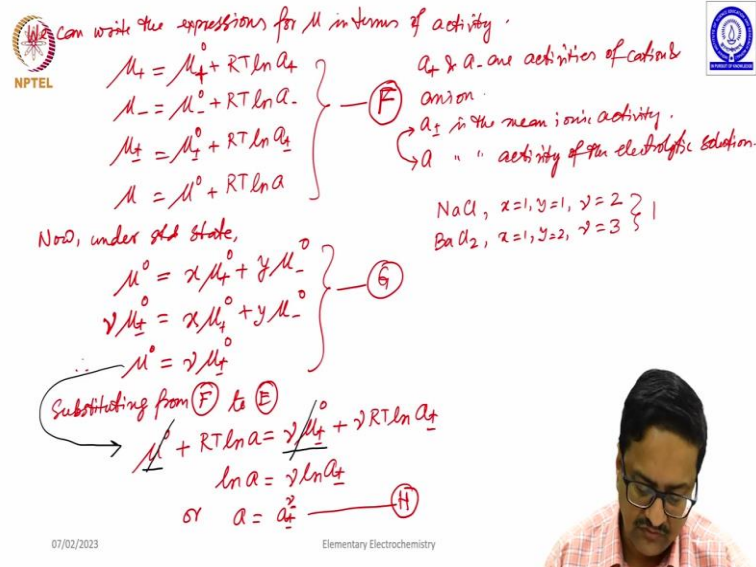 We can write the expressions for μ in terms of activity.
NPTEL
μ₊ = μ₊⁰ + RT ln a₊
μ₋ = μ₋⁰ + RT ln a₋
μ± = μ±⁰ + RT ln a±
μ = μ⁰ + RT ln a
F
a₊ & a₋ are activities of cation &
anion.
a± is the mean ionic activity.
a " " activity of the electrolytic solution.
NaCl, x=1, y=1, ν=2
BaCl₂, x=1, y=2, ν=3
Now, under std state,
μ⁰ = xμ₊⁰ + yμ₋⁰
νμ±⁰ = xμ₊⁰ + yμ₋⁰
∴ μ⁰ = νμ±⁰
G
Substituting from F to E
μ⁰ + RT ln a = νμ±⁰ + νRT ln a±
ln a = ν ln a±
or a = a±^ν
H
07/02/2023
Elementary Electrochemistry